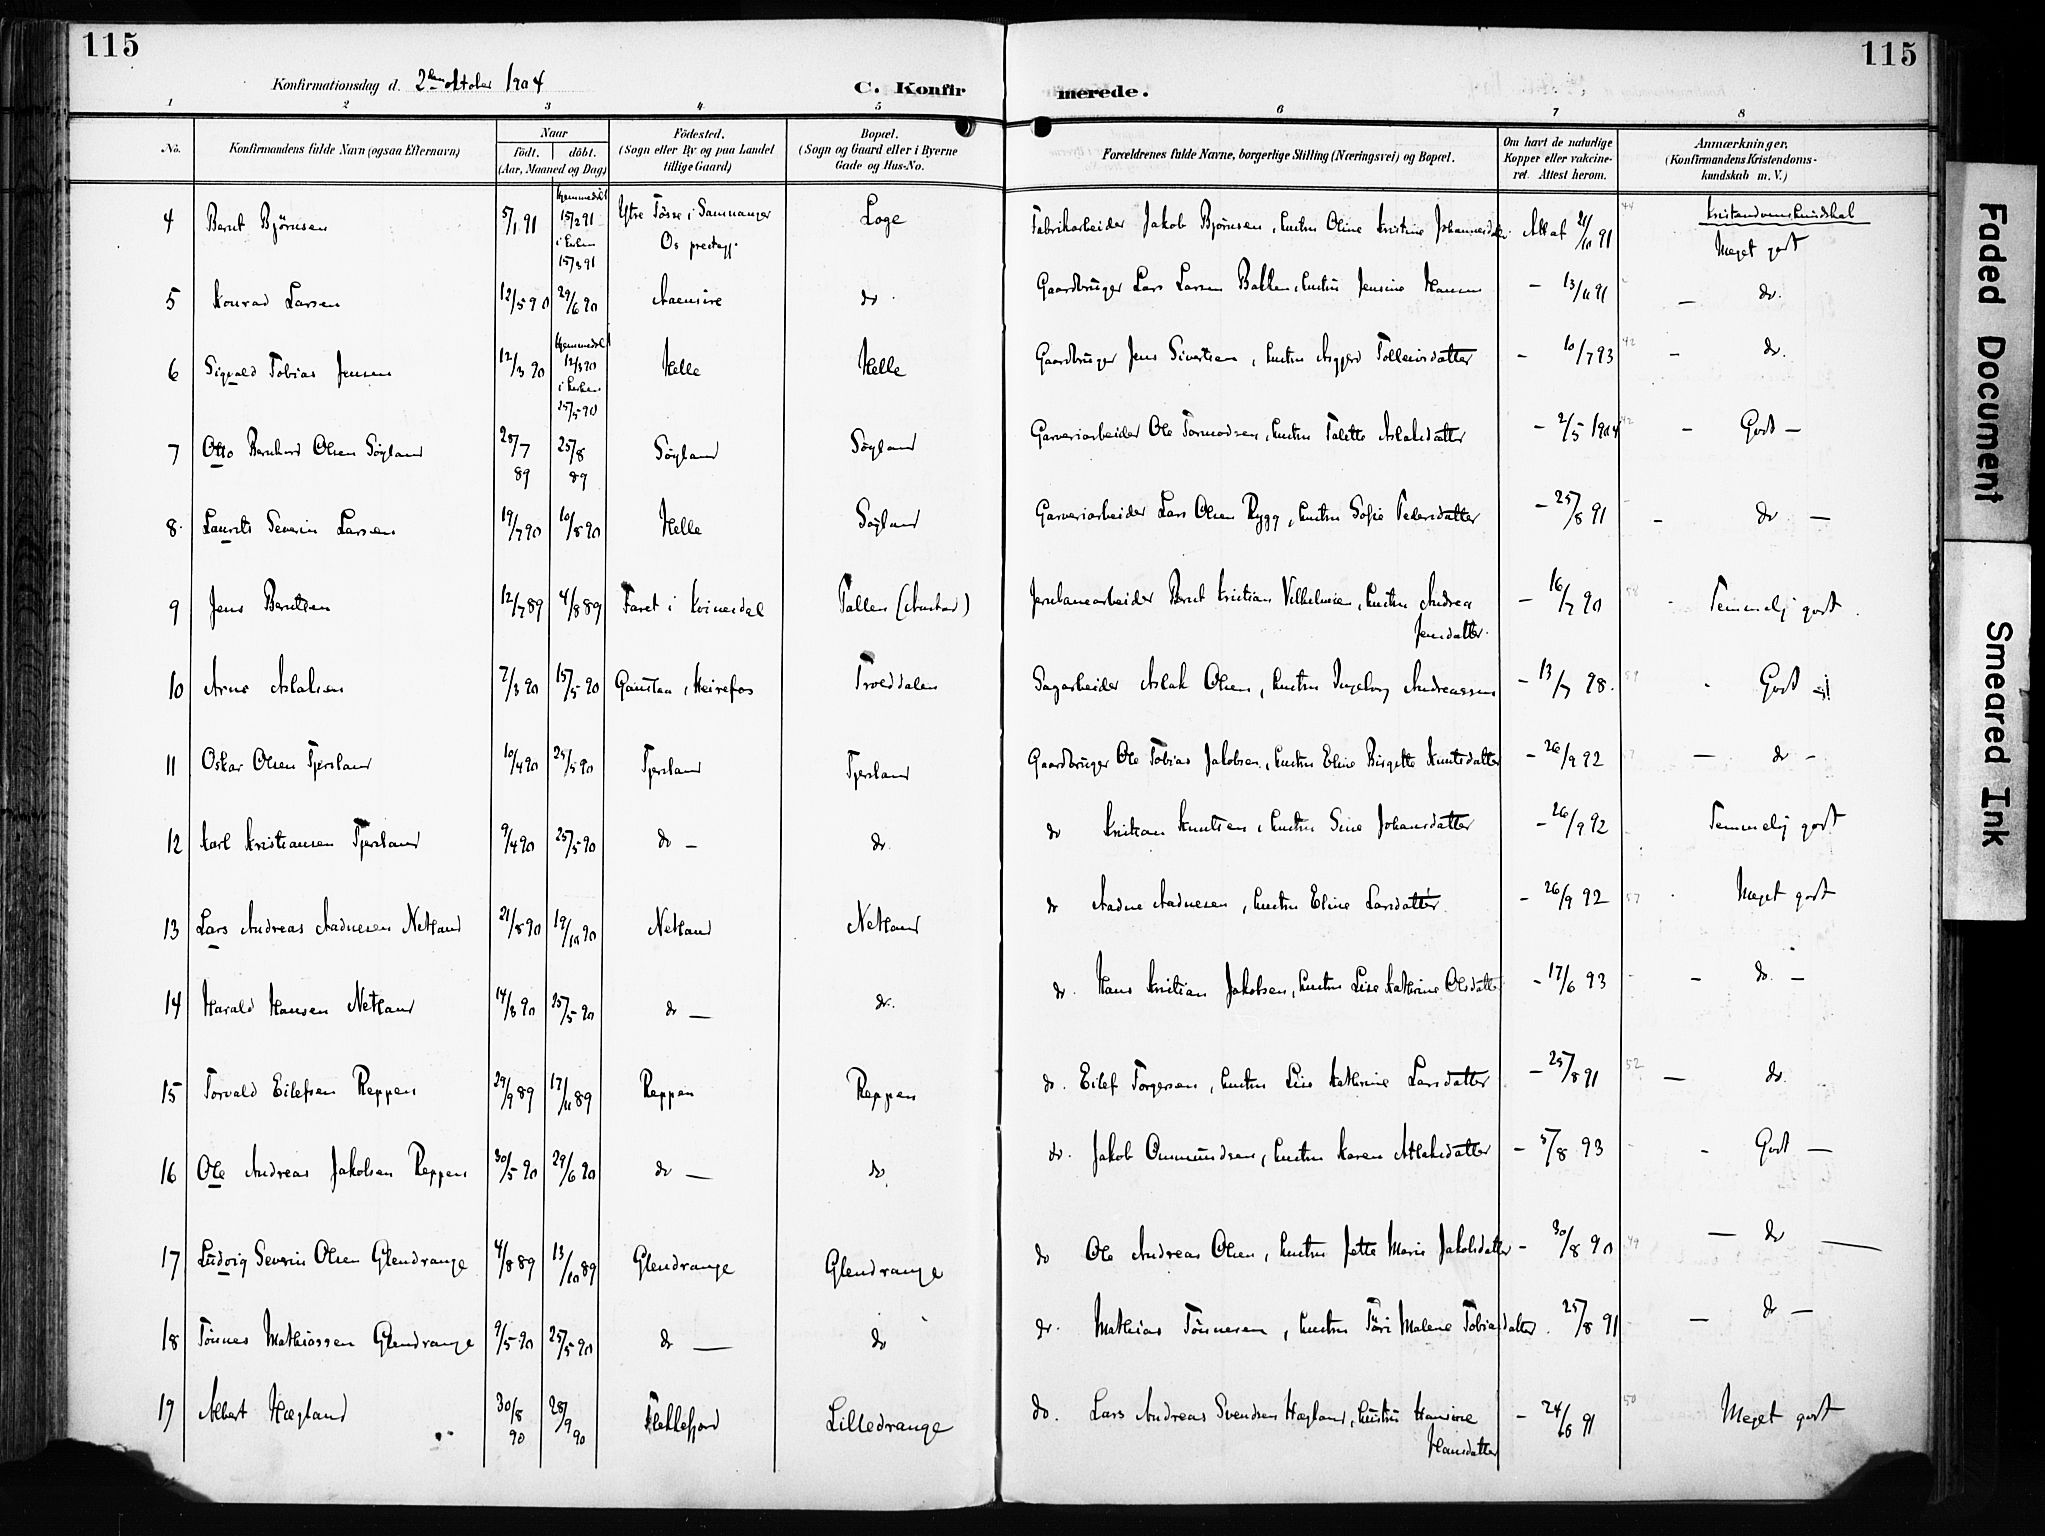 115
115
Konfirmationsdag d. 2den oktober 1904
C. Konfirmerede.
1 2 3 4 5 6 7 8
No.
Konfirmandens fulde Navn (ogsaa Efternavn)
Naar
födt. döbt.
(Aar, Maaned og Dag)
Födested.
(Sogn eller By og paa Landet
tillige Gaard)
Bopæl.
(Sogn og Gaard eller i Byerne
Gade og Hus-No.
Forældrenes fulde Navne, borgerlige Stilling (Næringsvei) og Bopæl.
Om havt de naturlige
Kopper eller vakcine-
ret. Attest herom.
Anmærkninger,
(Konfirmandens Kristendoms-
kundskab m. V.)
4 Bernt Bjørnsen 5/1 91 hjemmedöbt 15/2 91 i kirken 15/3 91 Ytre Tøsse i Samnanger Os prestegj. Loge Fabrikarbeider Jakob Bjørnsen, hustru Oline Kristine Johannesdatter Attest 21/10 91 Kristendomskundskab Meget godt
5 Konrad Larsen 12/5 90 29/6 90 Aaensire do Gaardbruger Lars Larsen Bakken, hustru Jensine Hansen - 13/11 91 - do.
6 Sigvald Tobias Jensen 12/3 90 hjemmedöbt 12/3 90 i kirken 25/5 90 Helle Helle Gaardbruger Jens Sivertsen, hustru Asgjerd Tolleivsdatter - 10/7 93 - do.
7 Otto Bernhard Olsen Søyland 28/7 89 25/8 89 Søyland Søyland Garveriarbeider Ole Tormodsen, hustru Talette Aslaksdatter - 2/5 1904 - Godt -
8. Laurits Severin Larsen 19/7 90 10/8 90 Helle Søyland Garveriarbeider Lars Olsen Rygg, hustru Sofie Pedersdatter - 25/8 91 - do -
9 Jens Berntsen 12/7 89 4/8 89 Faret i Kvinesdal Tallen Jernbanearbeider Bernt Kristian Vilhelmsen, hustru Andrea Jensdatter. - 16/7 90 - Temmelig godt
10 Arne Aslaksen 7/3 90 15/5 90 Heirefos Troeddalen Sagarbeider Aslak Olsen, hustru Ingeborg Andreassen - 13/7 98. - Godt
11 Oskar Olsen Fjersland 10/4 90 25/5 90 Fjersland Fjersland Gaardbruger Ole Tobias Jakobsen, hustru Eline Birgitte Knutsdatter - 26/9 92 - do -
12 Karl Kristiansen Fjersland 9/4 90 25/5 90 do - do. do Kristian Knutsen, hustru Sine Johansdatter - 26/9 92 Temmelig godt
13 Lars Andreas Aadnesen Netland 21/8 90 19/10 90 Netland Netland do Aadne Aadnesen, hustru Eline Larsdatter - 26/9 92 Meget godt
14 Harald Hansen Netland 14/3 90 25/5 90 do - do. do. Hans Kristian Jakobsen, hustru Lise Kathrine Olsdatter - 17/6 93 - do. -
15 Torvald Eilefsen Reppen 29/9 89 17/11 89 Reppen Reppen do. Eilef Torgersen, hustru Lise Kathrine Larsdatter - 25/8 91 - do.
16 Ole Andreas Jakobsen Reppen 30/5 90 29/6 90 do - do do. Jakob Ommundsen, hustru Karen Atlaksdatter - 5/8 93 - Godt -
17 Ludvig Severin Olsen Glendrange 4/8 89 13/10 89 Glendrange Glendrange do Ole Andreas Olsen, hustru Jette Marie Jakobsdatter - 30/8 90 - do -
18 Tönnes Mathiassen Glendrange 9/5 90 25/5 90 do - do do. Mathias Tönnesen, hustru Töri Malene Tobiasdatter. 25/8 91 - do -
19 Albert Hægland 30/8 90 28/9 90 Flekkefjord Lilledrange do. Lars Andreas Svendsen Hægland, hustru Hansine Hansdatter - 24/10 91 Meget godt
Faded Document
Smeared Ink